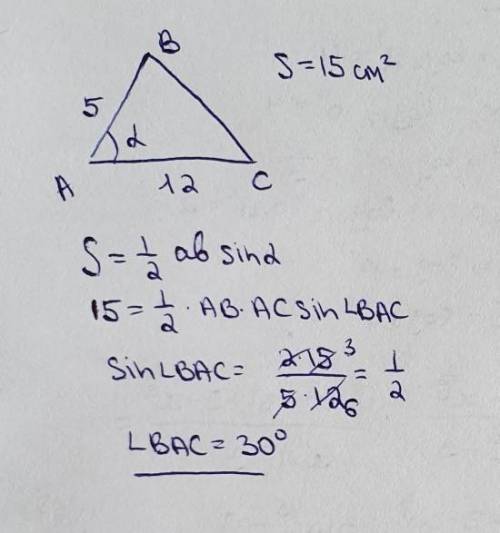 B
S=15 cm²
5
α
A
12
C
S=1/2 ab sinα
15=1/2·AB·AC sin∠BAC
sin∠BAC= 2·15 3 / 5·12 6 = 1/2
∠BAC=30°